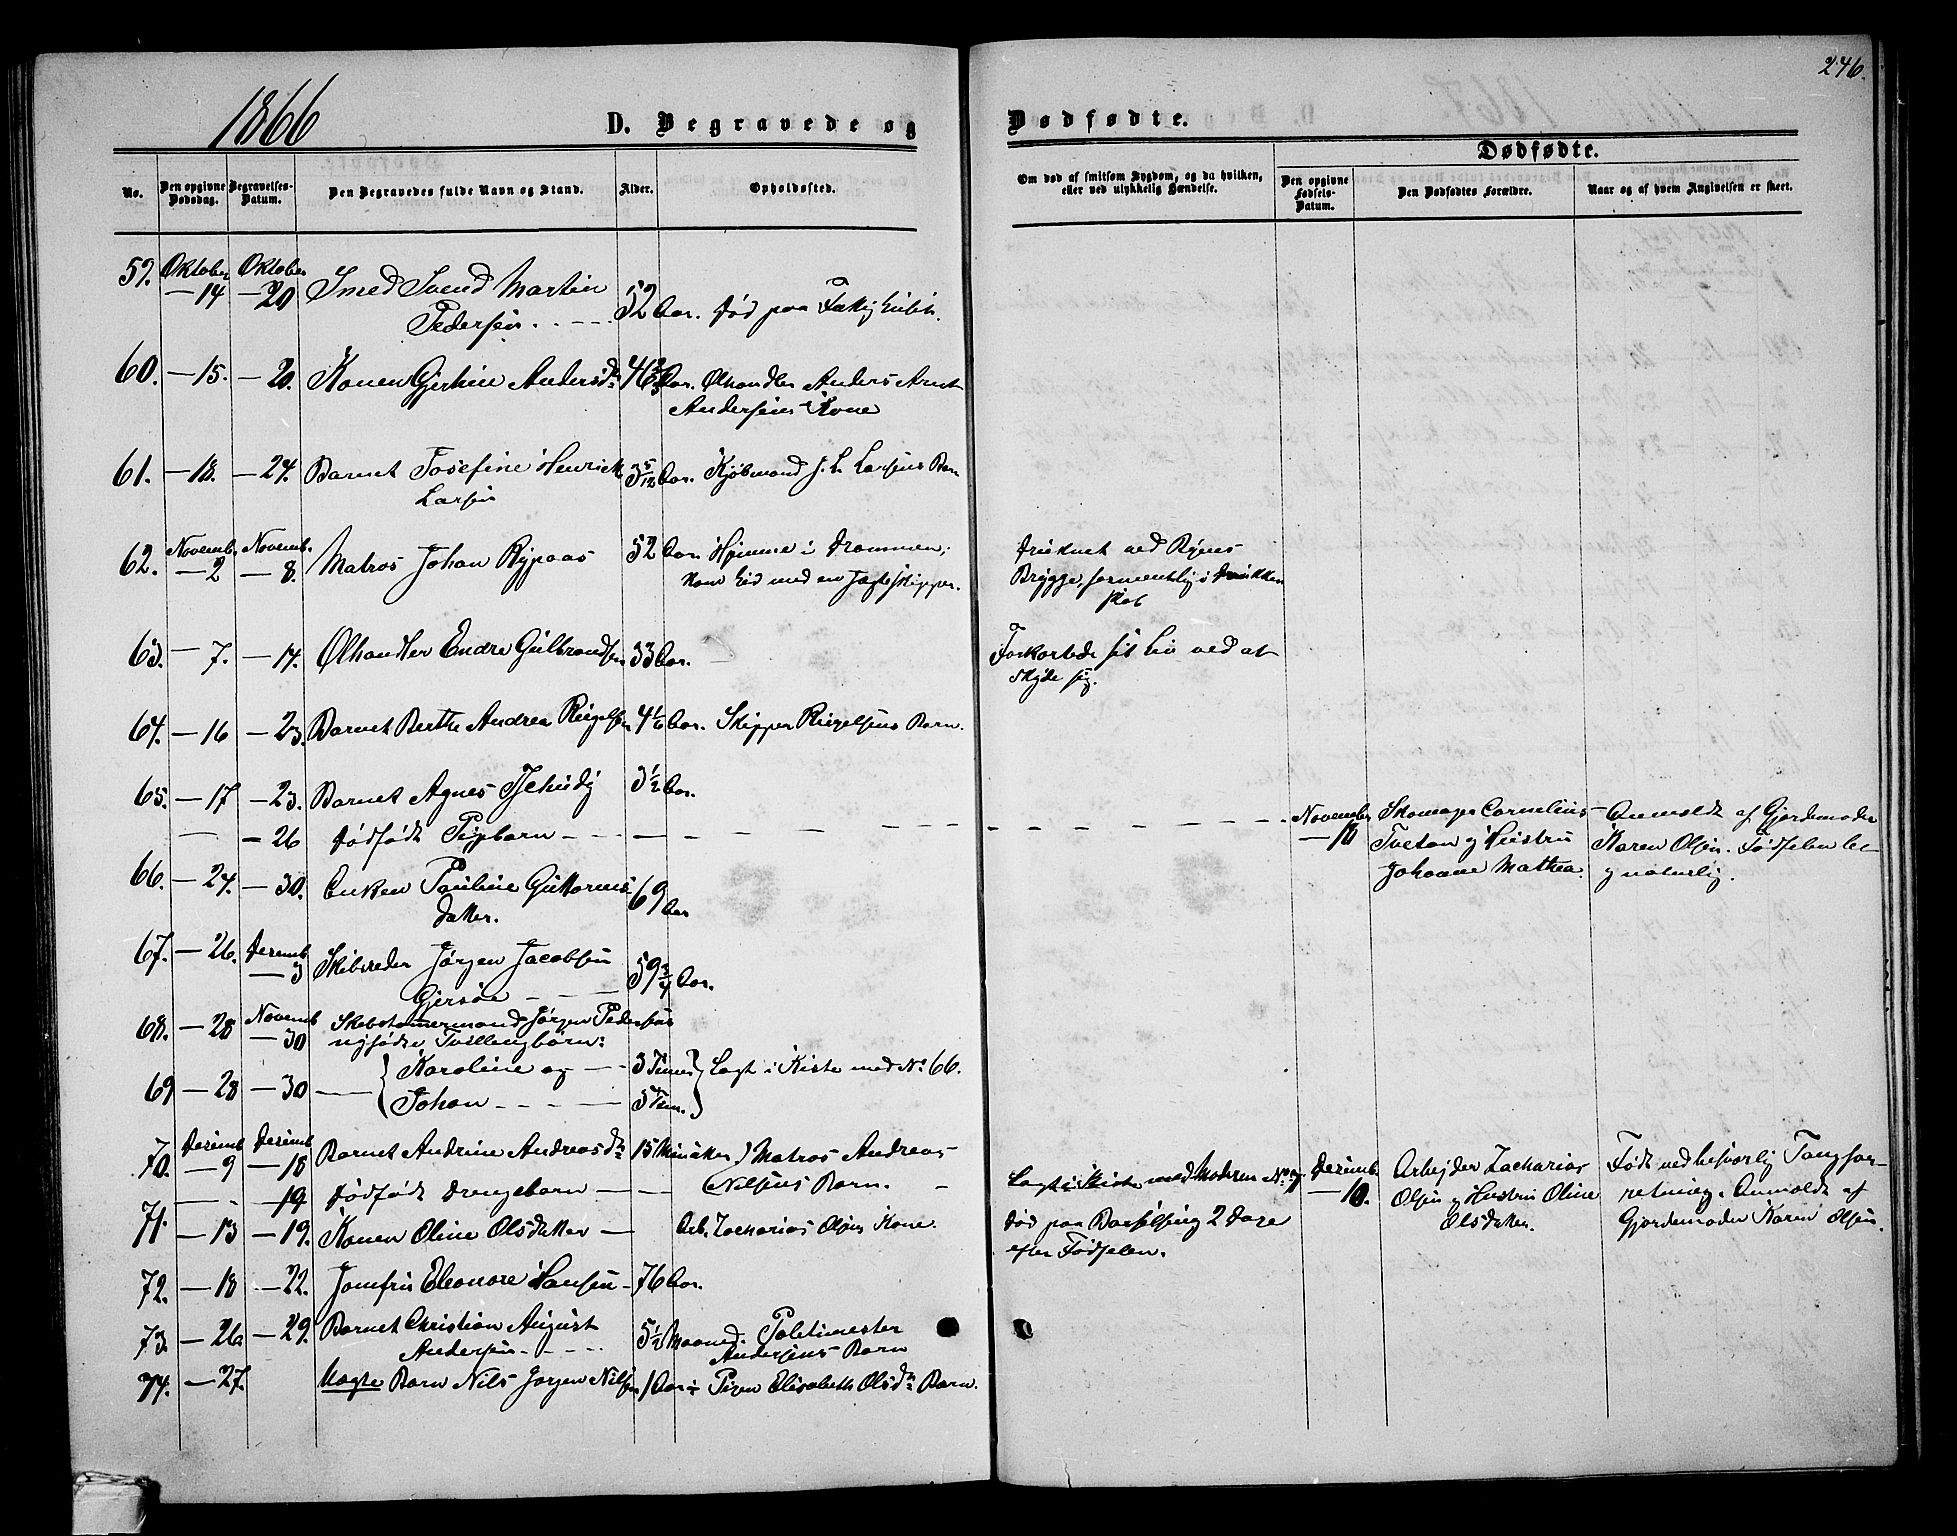 246.
1866
D. Begravede og Dødfødte.
Dødfødte.
No.
Den opgivne Dødsdag.
Begravelses-Datum.
Den Begravedes fulde Navn og Stand.
Alder.
Opholdssted.
Om død af smitsom Sygdom, og da hvilken, eller ved ulykkelig Hændelse.
Den opgivne Fødsels-Datum.
Den Dødfødtes Forældre.
Naar og af hvem Angivelsen er skeet.
59. Oktober — 14 Oktober — 20 Smed Svend Martin
Pedersen. 52 Aar. Død paa
60. — 15. — 20. Konen Andersdr 46 Aar. Ølhandler Anders Arnt
Andersens Kone
61. — 18. — 24. Barnet Josefine Henrick
Larsen 3 5/12 Aar. Kjøbmand J. L. Larsens Barn
62. Novemb. — 2 Novemb. — 8. Matros Johan Rypaas 52 Aar. Hjemme i Drammen,
kom hid med en Jagteskipper.
Druknet ved Ryens
Brygge, formentlig i Drukken
skab
63. — 7. — 14. Ølhandler Endre Gulbrandsen 33 Aar. —
Forkortede sit Liv ved at
skyde sig.
64. — 16 — 23. Barnet Berthe Andrea 4 1/2 Aar. Skipper Barn.
65. — 17 — 23. Barnet Agnes Tschudy 3 1/2 Aar.
— — 26 Dødfødt Pigebarn — — —
November — 18 Skomager Cornelius
Tveton og Hustru
Johanne Mathea.
Anmeldt af Gjordemoder
Karen Olsen. Fødselen let
og naturlig.
66. — 24. — 30. Enken Pauline Guttorms-
datter. 69 Aar
67. — 26. Desemb — 3 Skibsreder Jørgen Jacobsen
Gjersøe — — 59 3/4 Aar.
68. — 28 Novemb — 30 Skibstømmermand Jørgen Pedersens
nyfødte Tvillingbørn:
Karoline og — — 3 Timer } Lagt i Kiste med No 66.
69 — 28 — 30 — Johan — — — 5 Tim.
70. Desemb — 9 Desemb — 18 Barnet Andrine Andreasdr 15 Minutter } Matros Andreas
Nilsens Barn.
— — 19 Dødfødt Drengebarn — — —
Lagt i Kiste med Moderen No 71
Desemb. — 10. Arbejder Zacharias
Olsen og Hustru Oline
Olsdatter.
Født ved besværlig Tangfor-
retning. Anmeldt af
Gjordemoder Karen Olsen.
71. — 13 — 19. Konen Oline Olsdatter — Arb. Zacharias Olsens Kone.
Død paa Barselseng 2 Dage
efter Fødselen.
72. — 18 — 22. Jomfru Eleonore Hansen — 76 Aar.
73. — 26 — 29. Barnet Christian August
Andersen. — — 5 1/2 Maaned. Politimester
Andersens Barn
74. — 27. Uægte Barn Nils Jørgen Nilsen 1 Aar Pigen Elisabeth Olsdr Barn.